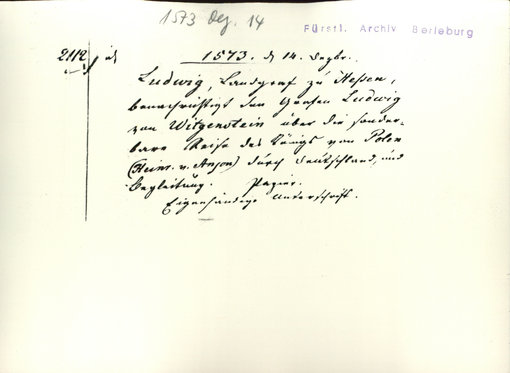 1573 Dez. 14
Fürstl. Archiv Berleburg
2112
1573. d 14. Dezbr.
Ludwig, Landgraf zu Hessen,
benachrichtigt den Grafen Ludwig
von Witgenstein über die sonder-
bare Reise des Königs von Polen
(Heinr. v. Anjou) durch Deutschland, und
Begleitung. Papier.
Eigenhändige Unterschrift.